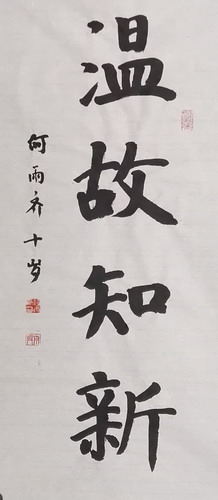 温故知新
何雨齐十岁